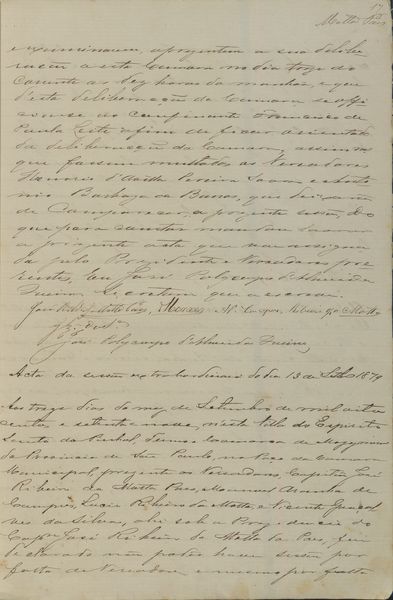 17
Motta Paes
e examinarem, aprezentem a sua delibe
ração a esta Camara no dia treze do
Corrente as dez horas da manhãa, e que
d'esta deliberação da Camara se offi
ciasse ao Francisco de
Paula Leite afim de ficar
da deliberação da Camara,
que fossem multados os Vereadores
Pereira e Anto
nio Barboza de Barros, que deixarão
de Comparecer a prezente sessão. Do
que para constar mandou lavrar
a prezente acta que vai assigna
da pelo Prezidente e Vereadores pre
zentes, Eu José Polycarpo d'Almeida
Secretario que a escrevi.
José Ribeiro da Motta Paes
José Polycarpo d'Almeida
Acta da sessão extraordinaria do dia 13 de Setbro 1879
Aos treze dias do mez de Setembro de mil oito
centos e setenta e nove, nesta Villa do Espirito
Santo do Pinhal, Termo e Comarca de Mogymirim
da Provincia de São Paulo, no Paço da Camara
Municipal, prezente os Vereadores, Capitão José
Ribeiro da Motta Paes, Manoel Aranha de
Campos, Lucio Ribeiro da Motta, e Vicente Gonçal
ves da Silva, ahi sob a Prezidencia do
Capm José Ribeiro da Motta Paes, foi
declarado não poder haver sessão por
falta de Vereadores e mesmo por falta